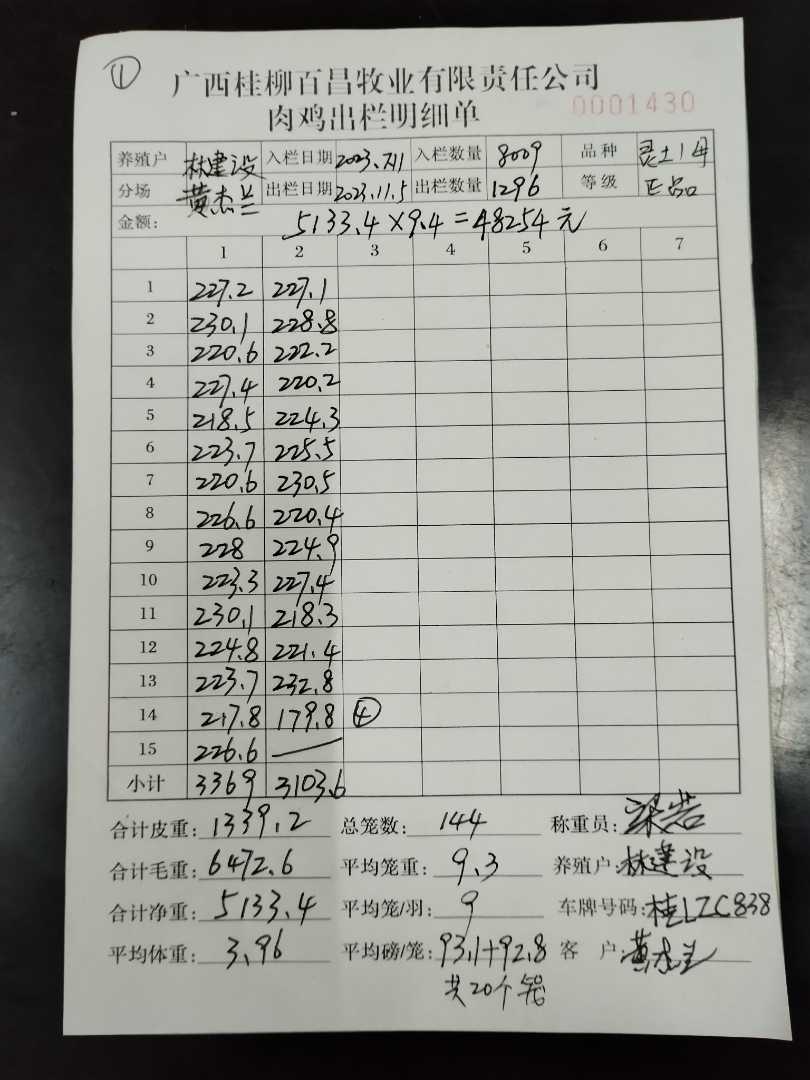 ①
广西桂柳百昌牧业有限责任公司
肉鸡出栏明细单 0001430
养殖户 林建设 入栏日期 2023.7.11 入栏数量 8009 品种 灵土1号
分场 黄杰兰 出栏日期 2023.11.5 出栏数量 1296 等级 正品
金额: 5133.4×9.4=48254元
1 2 3 4 5 6 7
1 227.2 227.1
2 230.1 228.8
3 220.6 222.2
4 227.4 220.2
5 218.5 224.3
6 223.7 225.5
7 220.6 230.5
8 226.6 220.4
9 228 224.9
10 223.3 227.4
11 230.1 218.3
12 224.8 221.4
13 223.7 232.8
14 217.8 179.8 ④
15 226.6 —
小计 3369 3103.6
合计皮重: 1339.2 总笼数: 144 称重员:
合计毛重: 6472.6 平均笼重: 9.3 养殖户: 林建设
合计净重: 5133.4 平均笼/羽: 9 车牌号码: 桂LZC838
平均体重: 3.96 平均磅/笼: 93.1+92.8 客 户: 黄杰兰
共20个笼